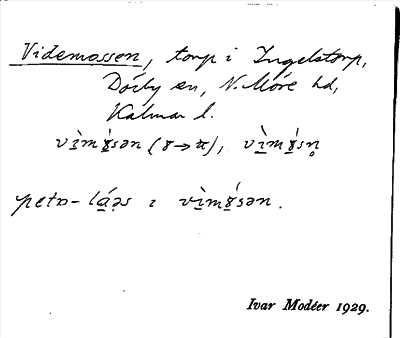 Videmossen, torp i Ingelstorp,
Dörby sn, N. Möre hd,
Kalmar l.
vì̱mɤ̱́sən (ɤ→π), vì̱mɤ̱́sn̥
petɒ-lá̱əs ɪ vì̱mɤ̱́sən.
Ivar Modéer 1929.